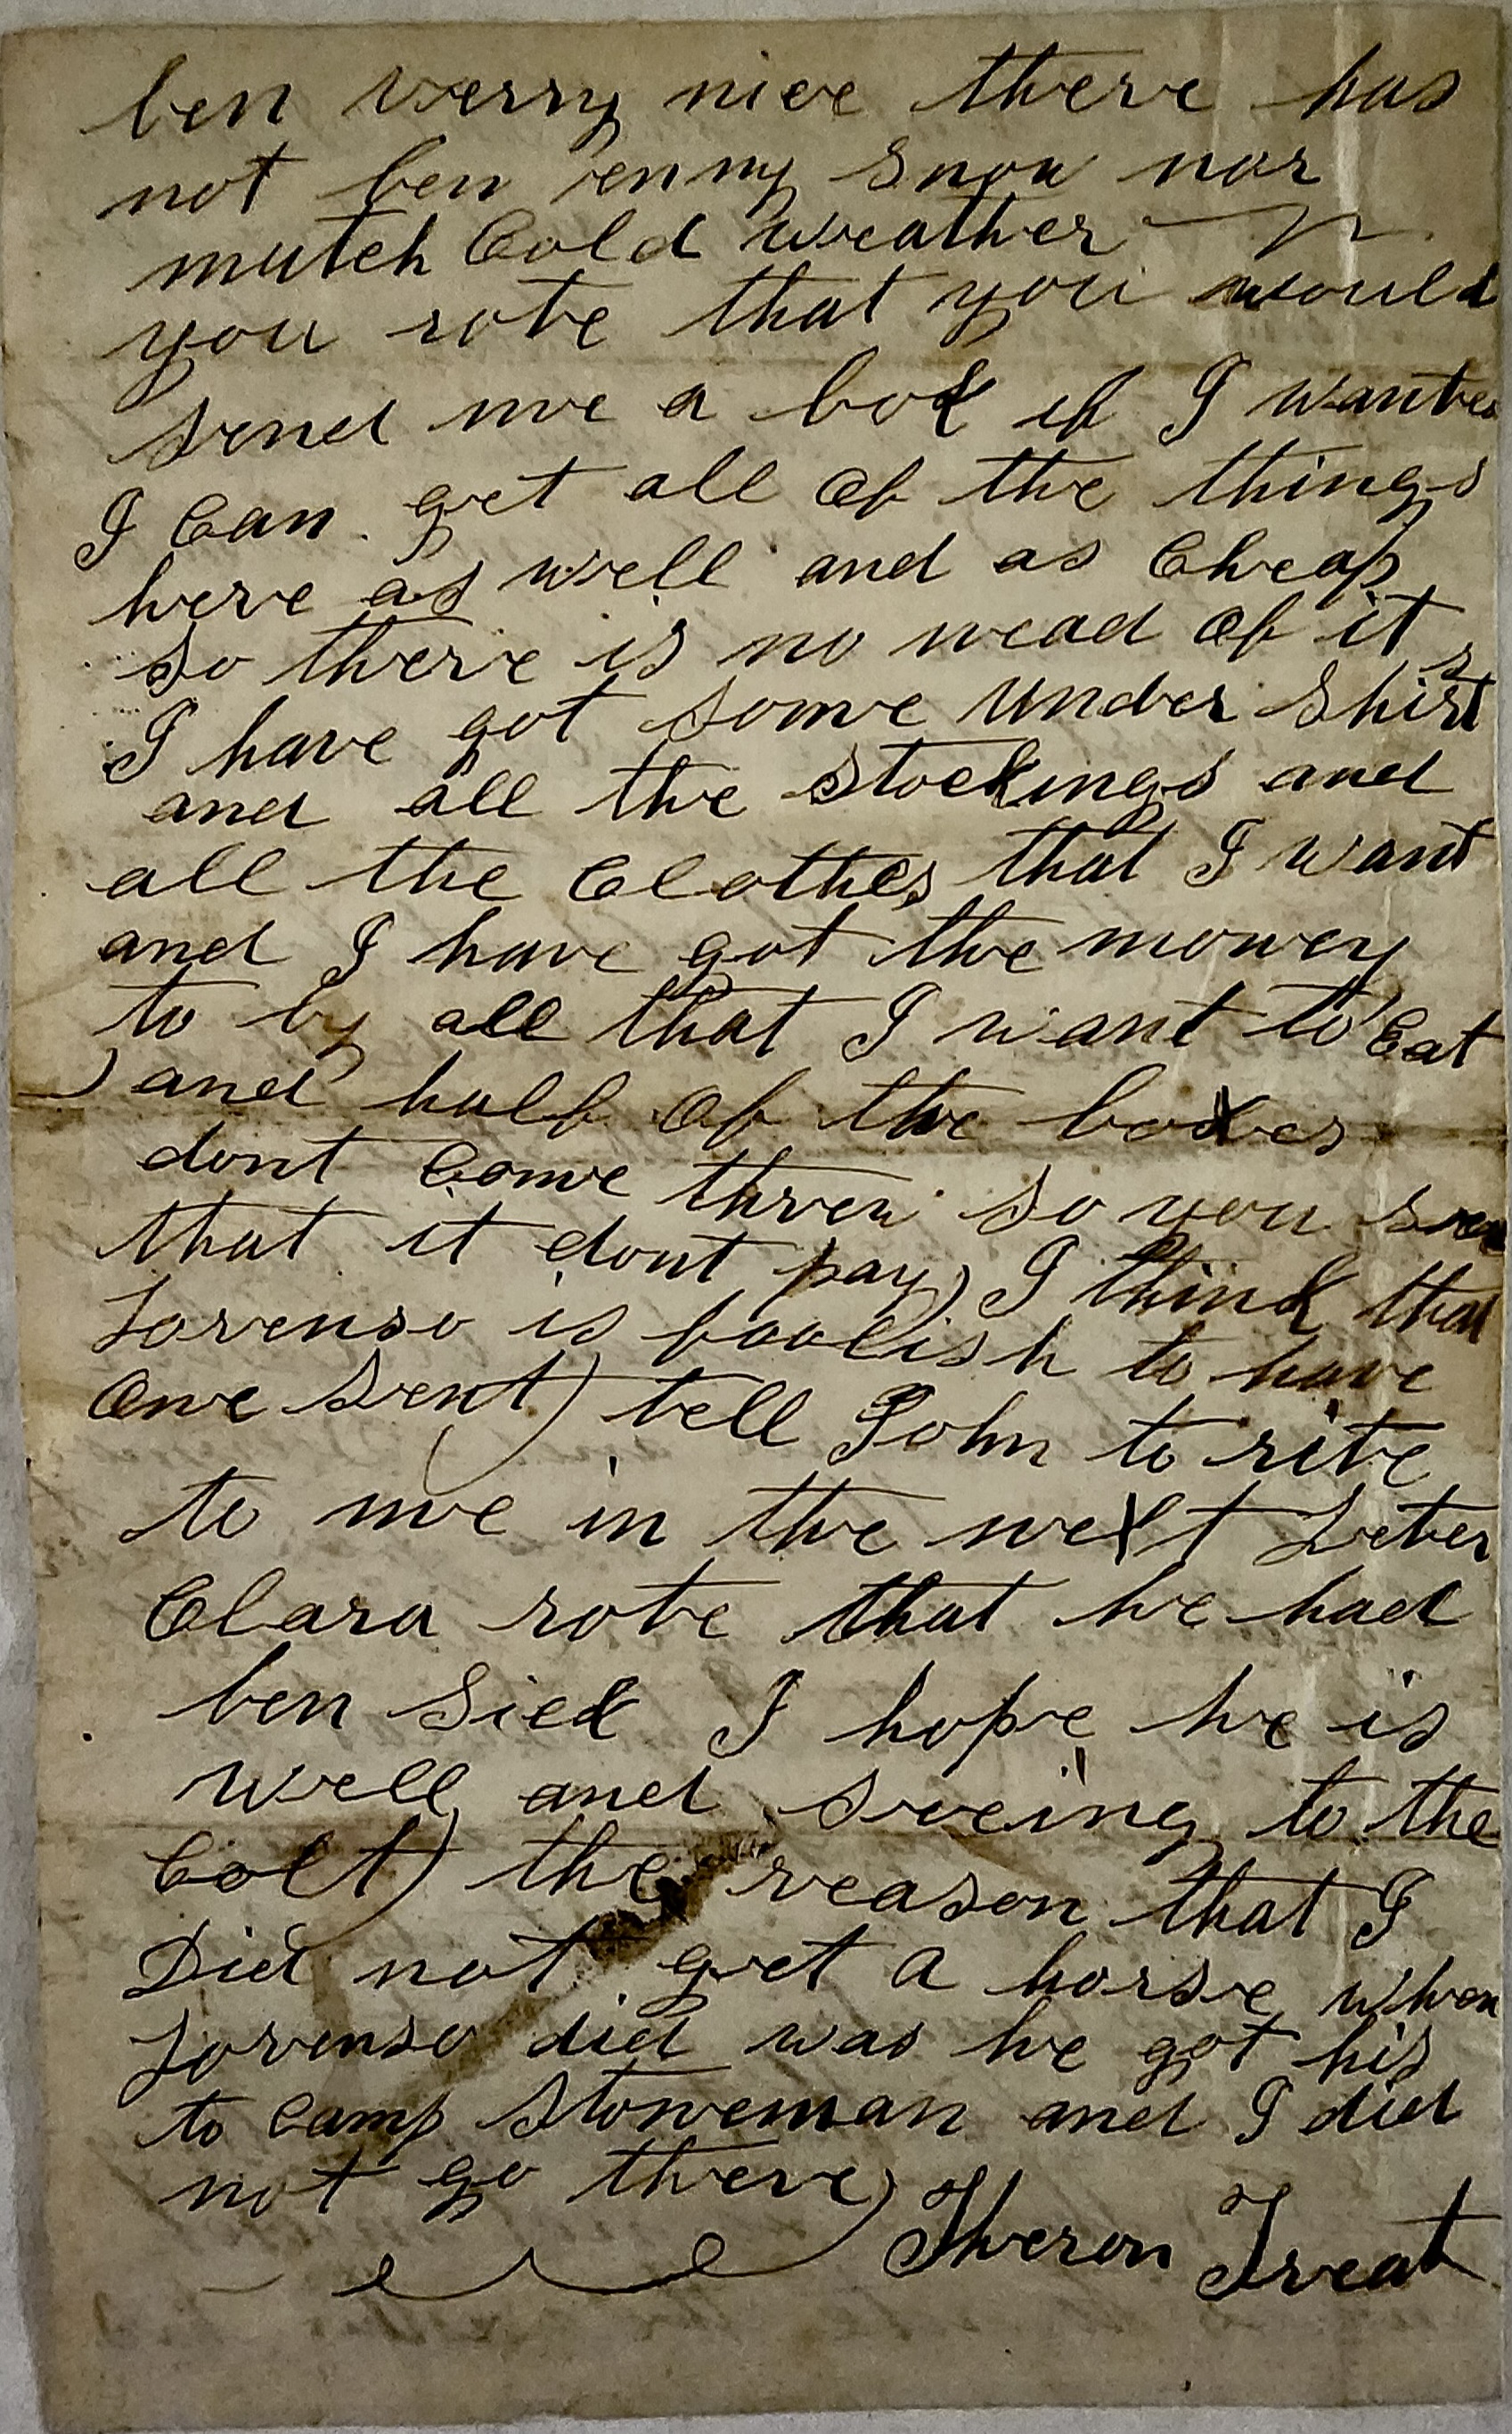 ben verry nice there has
not ben enny Snow nor
mutch Cold weather
you rote that you would
send me a box if I wanted
I Can get all of the things
here as well and as Cheap
so there is no nead of it
I have got some under Shirts
and all the stockings and
all the Clothes that I want
and I have got the money
to by all that I want to Eat
) and half of the boxes
dont Come threw so you see
that it dont pay) I think that
Lorenso is foolish to have
One sent) tell John to rite
to me in the next Leter
Clara rote that he had
ben Sick I hope he is
well and seeing to the
Colt) the reason that I
Did not get A horse when
Lorenso did was he got his
to Camp Stoneman and I did
not go there)
Theron Treat